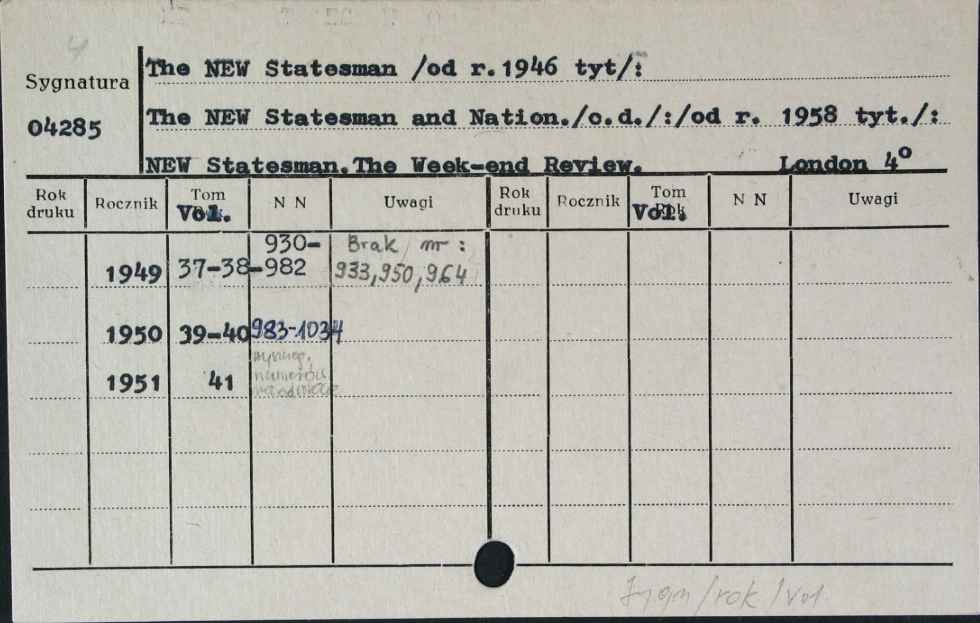 4
The NEW Statesman /od r.1946 tyt/:
Sygnatura
04285
The NEW Statesman and Nation./o.d./:/od r. 1958 tyt./:
NEW Statesman.The Week-end Review. London 4°
Rok druku Rocznik Tom Vol. N N Uwagi Rok druku Rocznik Tom Rok Vol. N N Uwagi
1949 37-38 930-982 Brak nr: 933,950,964
1950 39-40 983-1034
1951 41 numerów
/rok/vol.